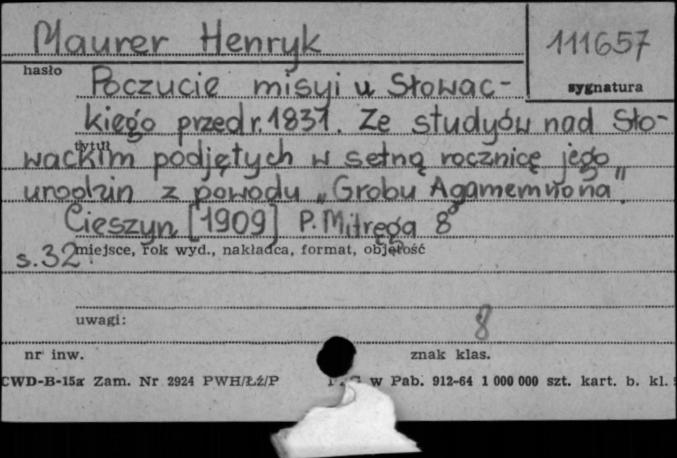 Maurer Henryk
111657
hasło
sygnatura
Poczucie misyi u Słowac-
kiego przed r. 1831. Ze studyów nad Sło-
tytuł
wackim podjętych w setną rocznicę jego
urodzin z powodu „Grobu Agamemnona”.
Cieszyn [1909] P. Mitręga 8°
s. 32
miejsce, rok wyd., nakładca, format, objętość
uwagi:
8
nr inw.
znak klas.
CWD-B-15a Zam. Nr 2924 PWH/Łź/P
w Pab. 912-64 1 000 000 szt. kart. b. kl.